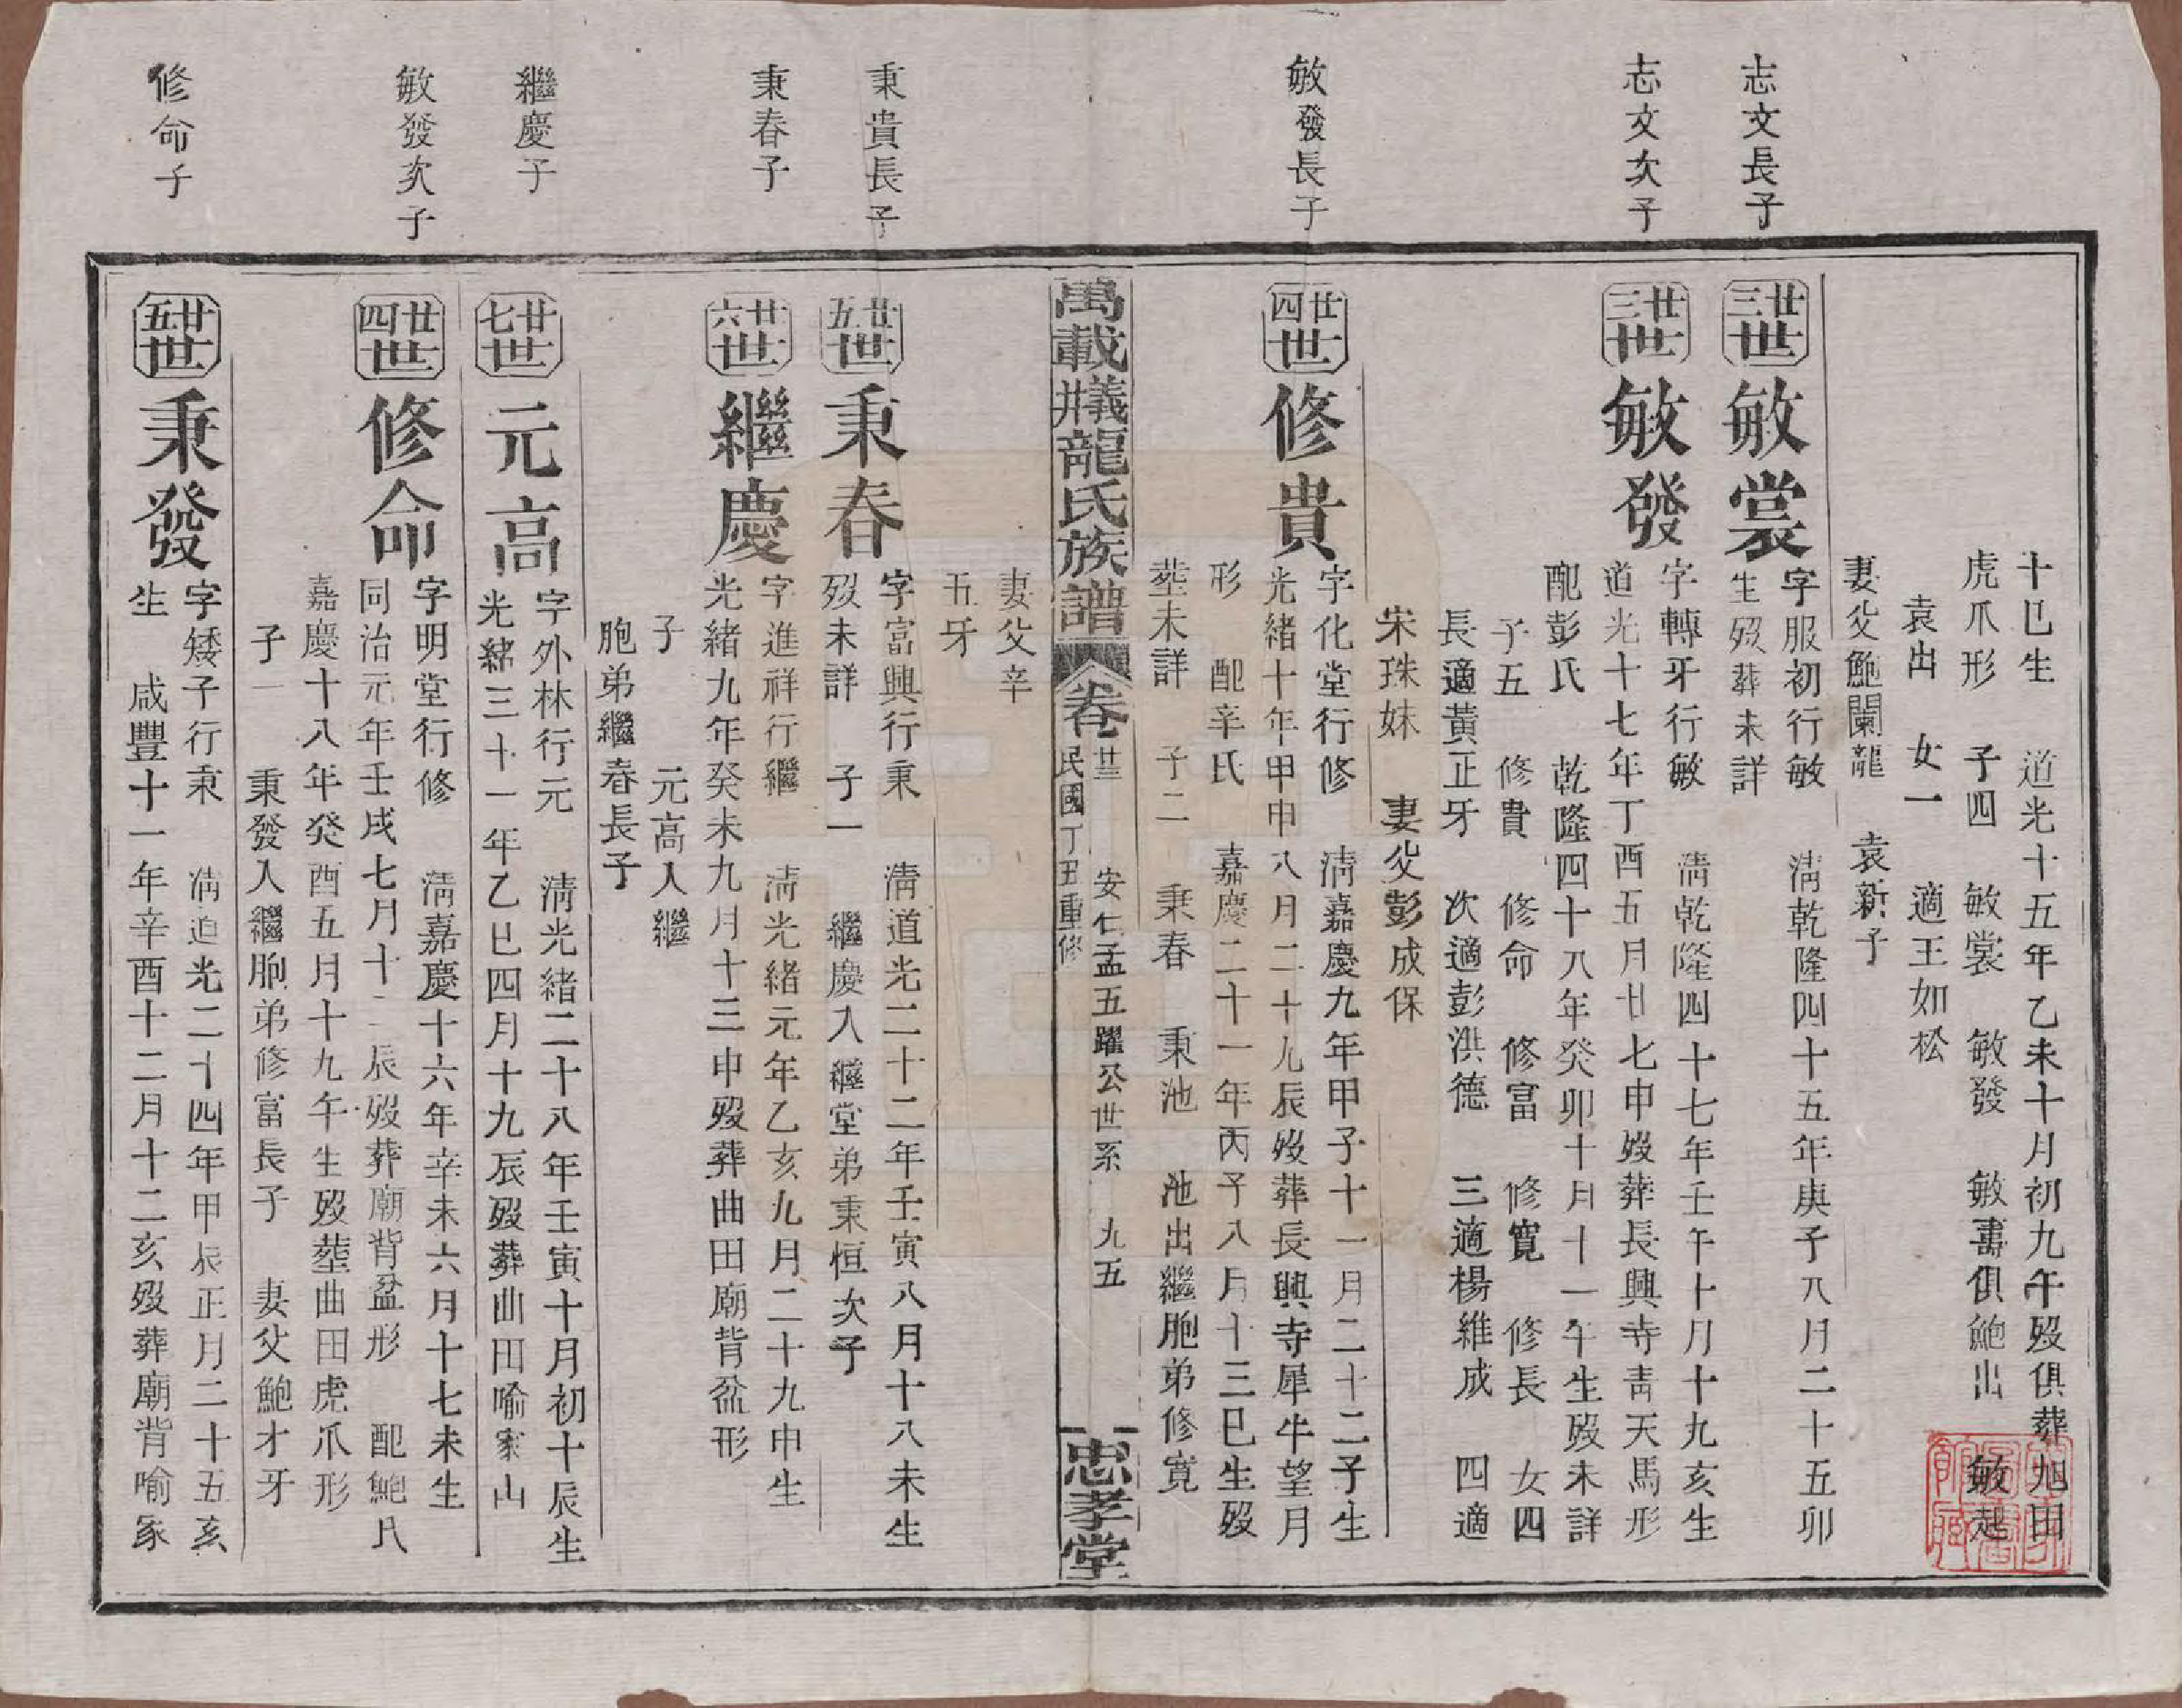 十巳生　道光十五年乙未十月初九午歿俱葬旭田
虎爪形　子四　敏裳　敏發　敏壽俱鮑出　敏起
袁出　女一　適王如松
妻父鮑闌龍　袁新子
志文長子
廿三世　敏裳　字服初行敏　淸乾隆四十五年庚子八月二十五卯
生歿葬未詳
志文次子
廿三世　敏發　字轉牙行敏　淸乾隆四十七年壬午十月十九亥生
道光十七年丁酉五月廿七申歿葬長興寺靑天馬形
配彭氏　乾隆四十八年癸卯十月十一午生歿未詳
子五　修貴　修命　修富　修寬　修長　女四
長適黃正牙　次適彭洪德　三適楊維成　四適
宋珠妹　妻父彭成保
敏發長子
廿四世　修貴　字化堂行修　淸嘉慶九年甲子十一月二十二子生
光緒十年甲申八月二十九辰歿葬長興寺犀牛望月
形　配辛氏　嘉慶二十一年丙子八月十三巳生歿
塟未詳　子二　秉春　秉池　池出繼胞弟修寬
萬載鵞龍氏族譜　卷廿三　民國丁丑重修　安仁孟五躍公世系　九五　忠孝堂
妻父辛
五牙
秉貴長子
廿五世　秉春　字富興行秉　淸道光二十二年壬寅八月十八未生
歿未詳　子一　繼慶入繼堂弟秉恒次子
秉春子
廿六世　繼慶　字進祥行繼　淸光緒元年乙亥九月二十九申生
光緒九年癸未九月十三申歿葬曲田廟背盆形
子　元高入繼
胞弟繼春長子
繼慶子
廿七世　元高　字外林行元　淸光緒二十八年壬寅十月初十辰生
光緒三十一年乙巳四月十九辰歿葬曲田喻家山
敏發次子
廿四世　修命　字明堂行修　淸嘉慶十六年辛未六月十七未生
同治元年壬戌七月十一辰歿葬廟背盆形　配鮑氏
嘉慶十八年癸酉五月十九午生歿塟曲田虎爪形
子一　秉發入繼胞弟修富長子　妻父鮑才牙
修命子
廿五世　秉發　字矮子行秉　淸道光二十四年甲辰正月二十五亥
生　咸豐十一年辛酉十二月十二亥歿葬廟背喻家